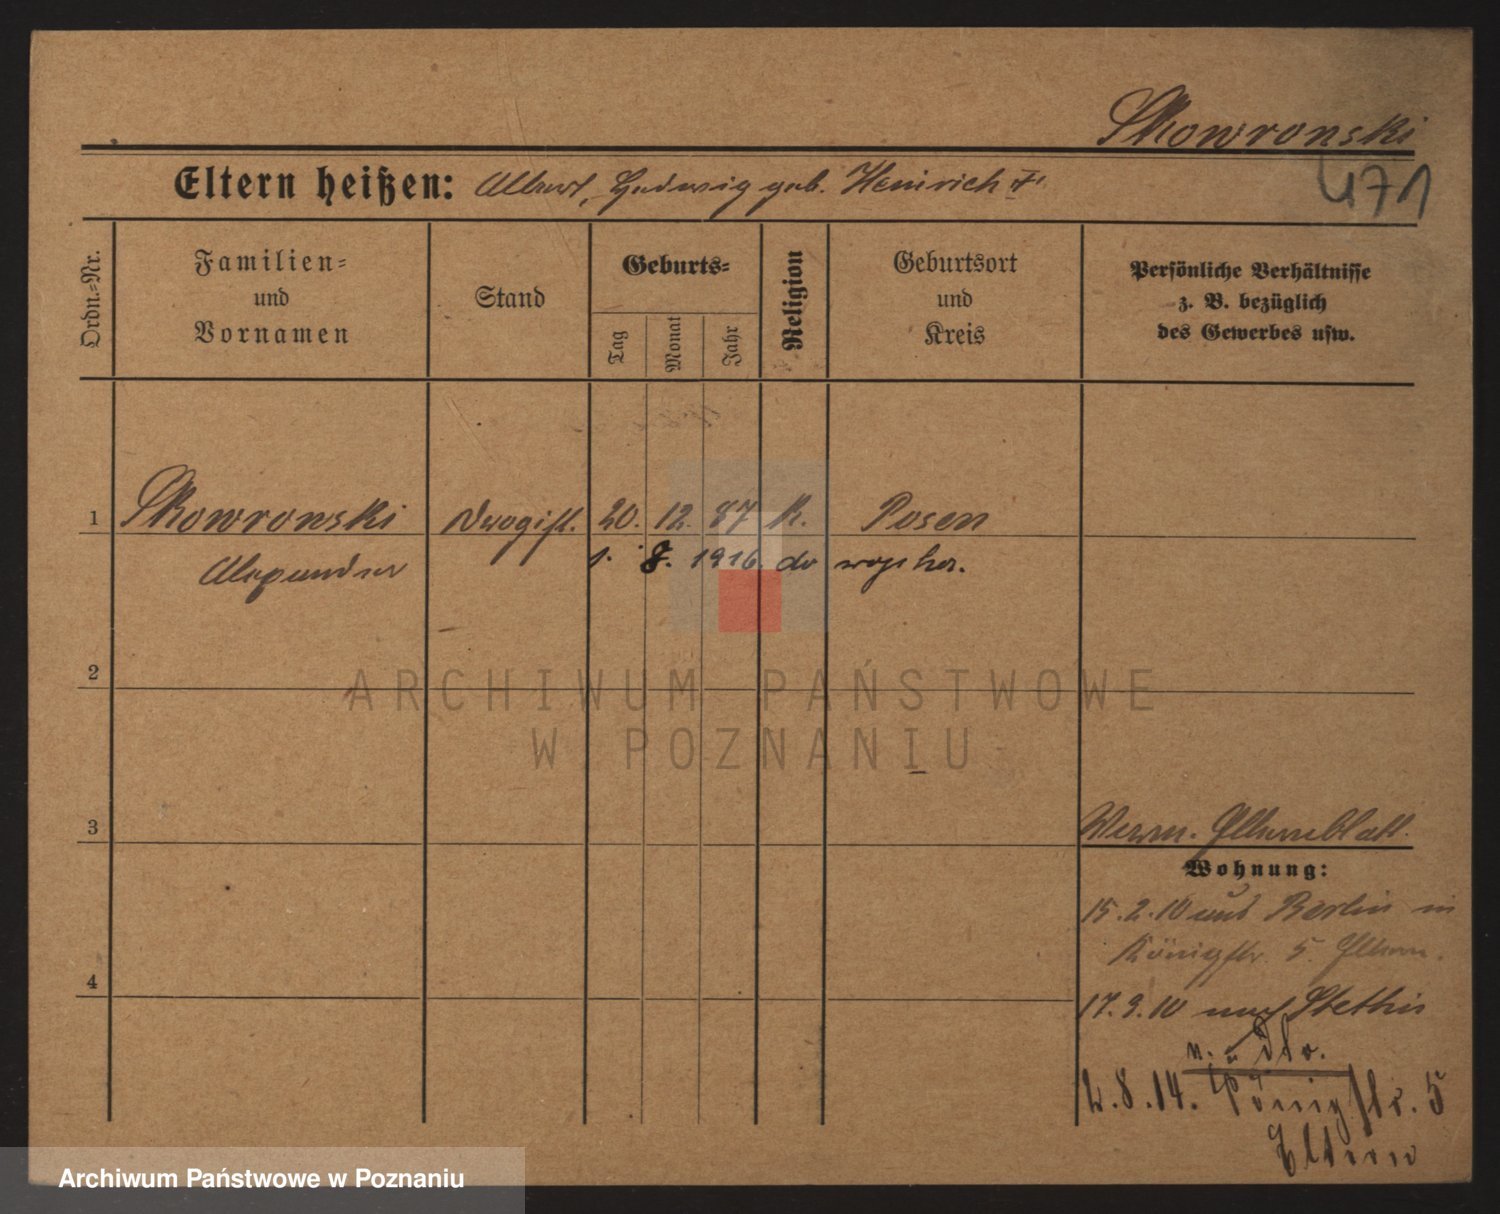 Skowronski
Eltern heißen: Albert, Hedwig geb. Heinrich
471
Ordn.-Nr.
Familien-
und
Vornamen
Stand
Geburts-
Tag
Monat
Jahr
Religion
Geburtsort
und
Kreis
Persönliche Verhältnisse
z. B. bezüglich
des Gewerbes usw.
1 Skowronski Drogist. 20. 12. 87 k. Posen
Alexander 1. 8. 1916.
2
ARCHIWUM PAŃSTWOWE
W POZNANIU
3
Elternblatt.
Wohnung:
15.2.10 aus Berlin in
Königstr. 5. Eltern.
4
17.9.10 nach Stettin
2.8.14. Königstr. 5
Eltern
Archiwum Państwowe w Poznaniu